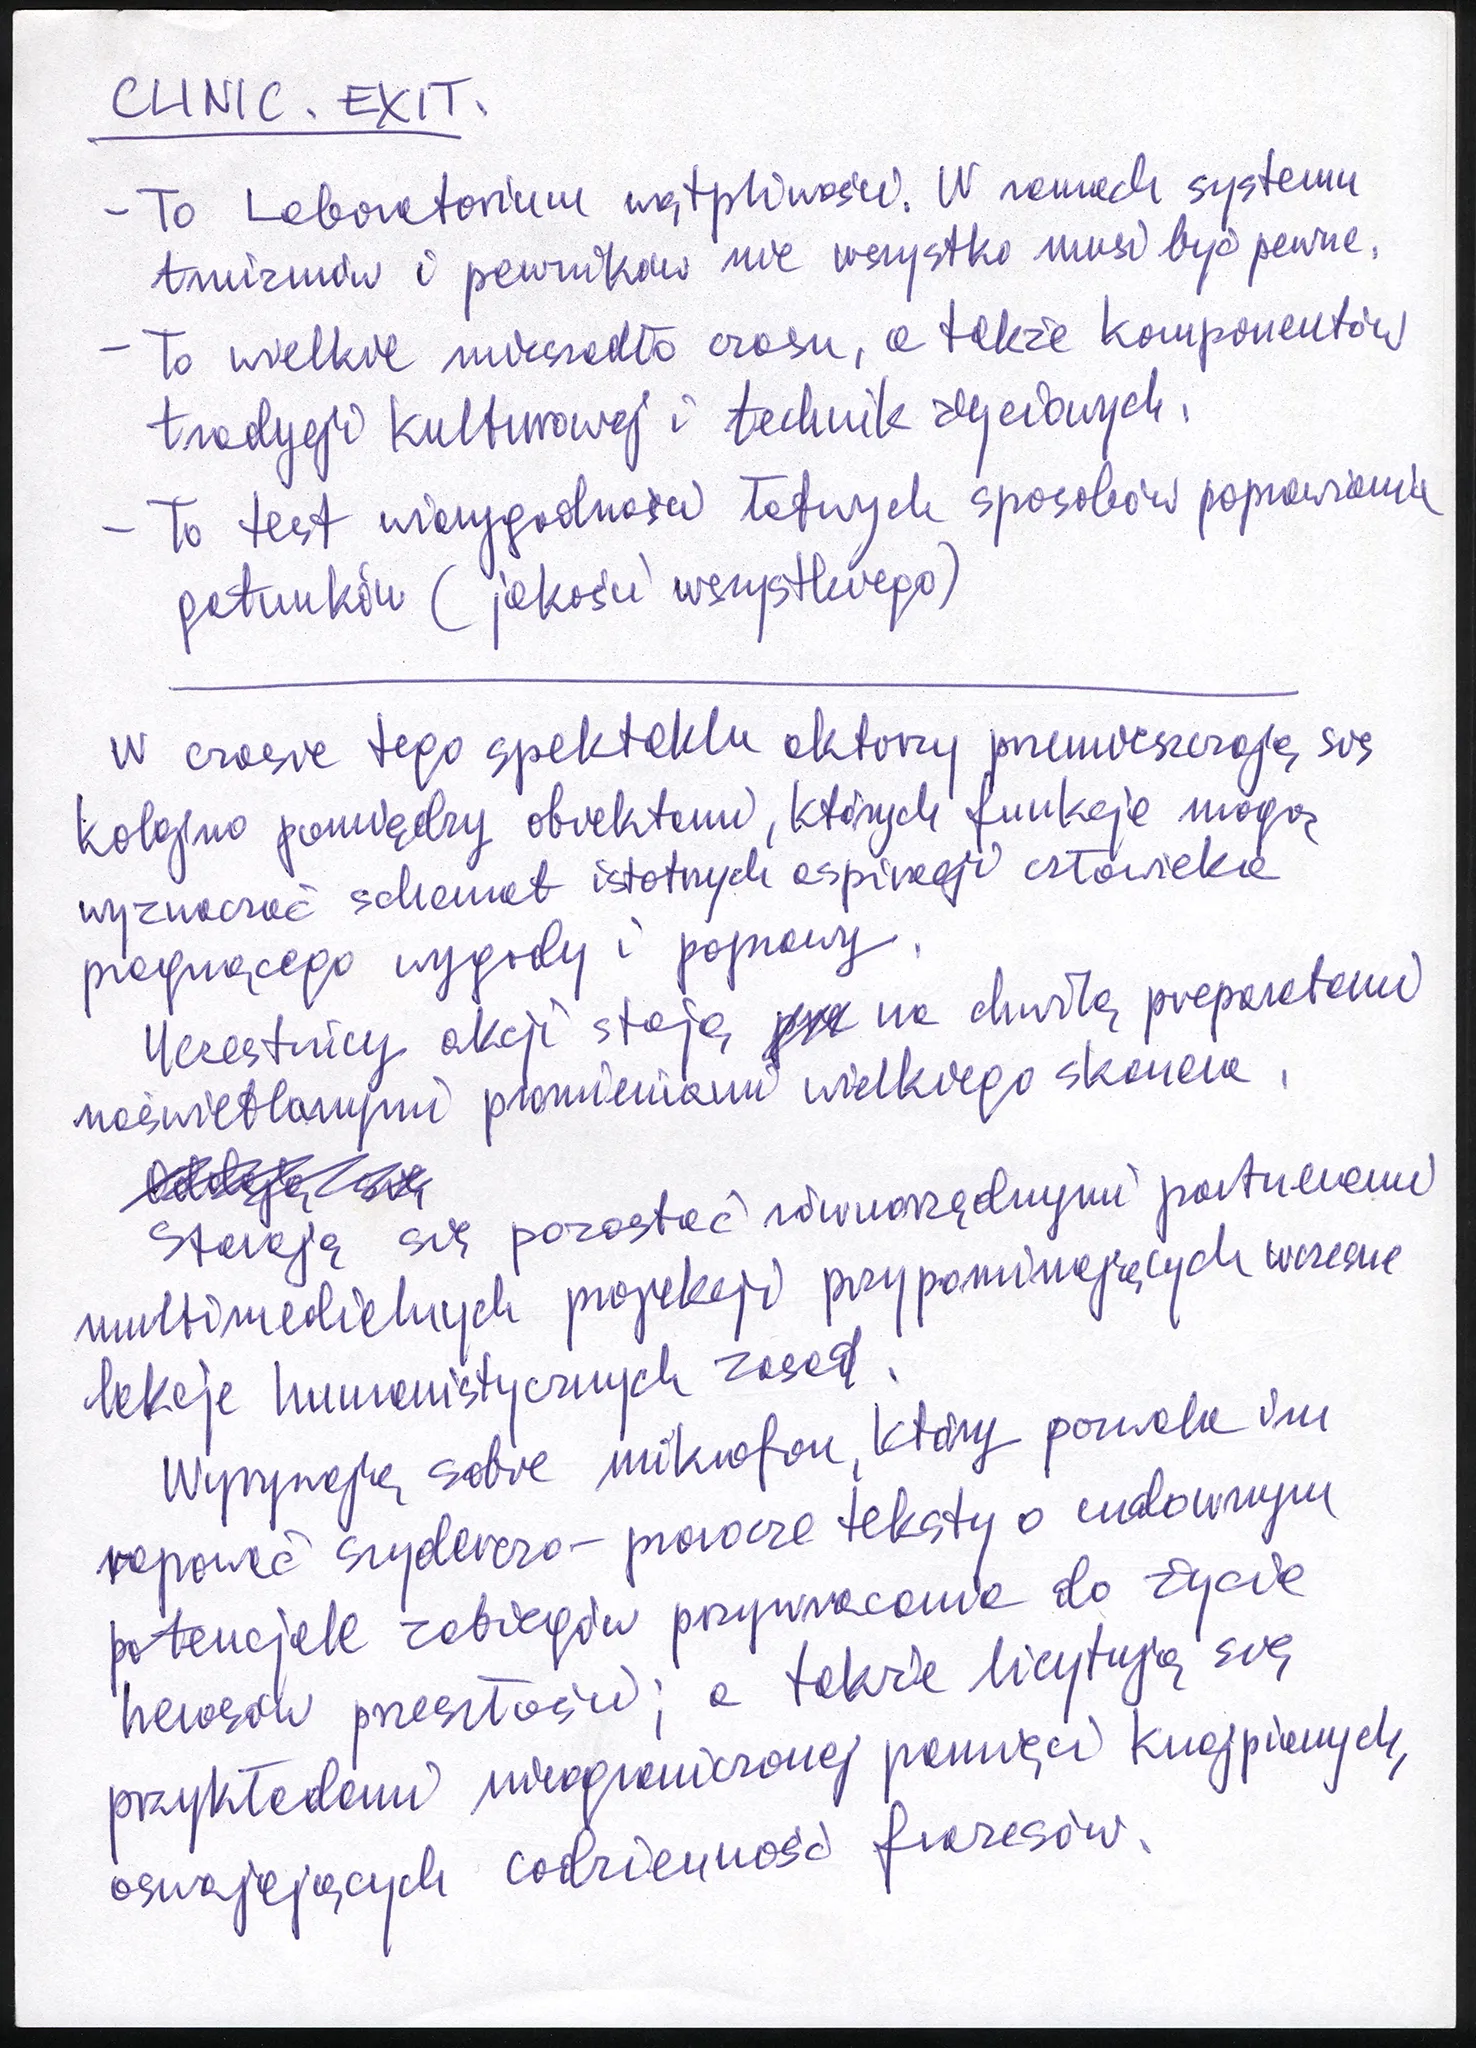 CLINIC. EXIT.
- To Laboratorium wątpliwości. W ramach systemu
truizmów i pewników nie wszystko musi być pewne.
- To wielkie mieszadło czasu, a także komponentów
tradycji kulturowej i technik życiowych.
- To test wiarygodności łatwych sposobów poprawiania
gatunków (jakości wszystkiego)
W czasie tego spektaklu aktorzy przemieszczają się
kolejno pomiędzy obiektami, których funkcje mogą
wyznaczać schemat istotnych aspiracji człowieka
pragnącego wygody i poprawy.
Uczestnicy akcji stają na chwilę preparatami
naświetlanymi promieniami wielkiego skanera.
Starają się pozostać równorzędnymi partnerami
multimedialnych projekcji przypominających wczesne
lekcje humanistycznych zasad.
Wyrywają sobie mikrofon, który pozwala im
rapować szyderczo-prorocze teksty o cudownym
potencjale zabiegów przywracania do życia
herosów przeszłości; a także licytują się
przykładami nieograniczonej pamięci knajpianych,
oswajających codzienność frazesów.